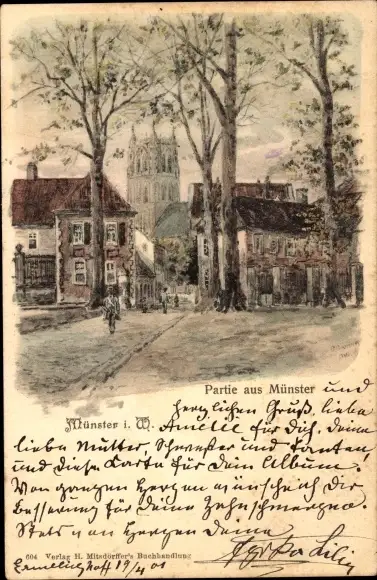 Partie aus Münster und
Münster i. W. herzlichen Gruß, liebe
Amélie für Dich, Deine
liebe Mutter, Schwester und Tanten
und diese Karte für Dein Album!
Von ganzem Herzen wünsche ich Dir
Besserung für Deine Zahnschmerzen.
Stets von Herzen Deine
604 Verlag H. Mitsdörffer's Buchhandlung
19/4 01